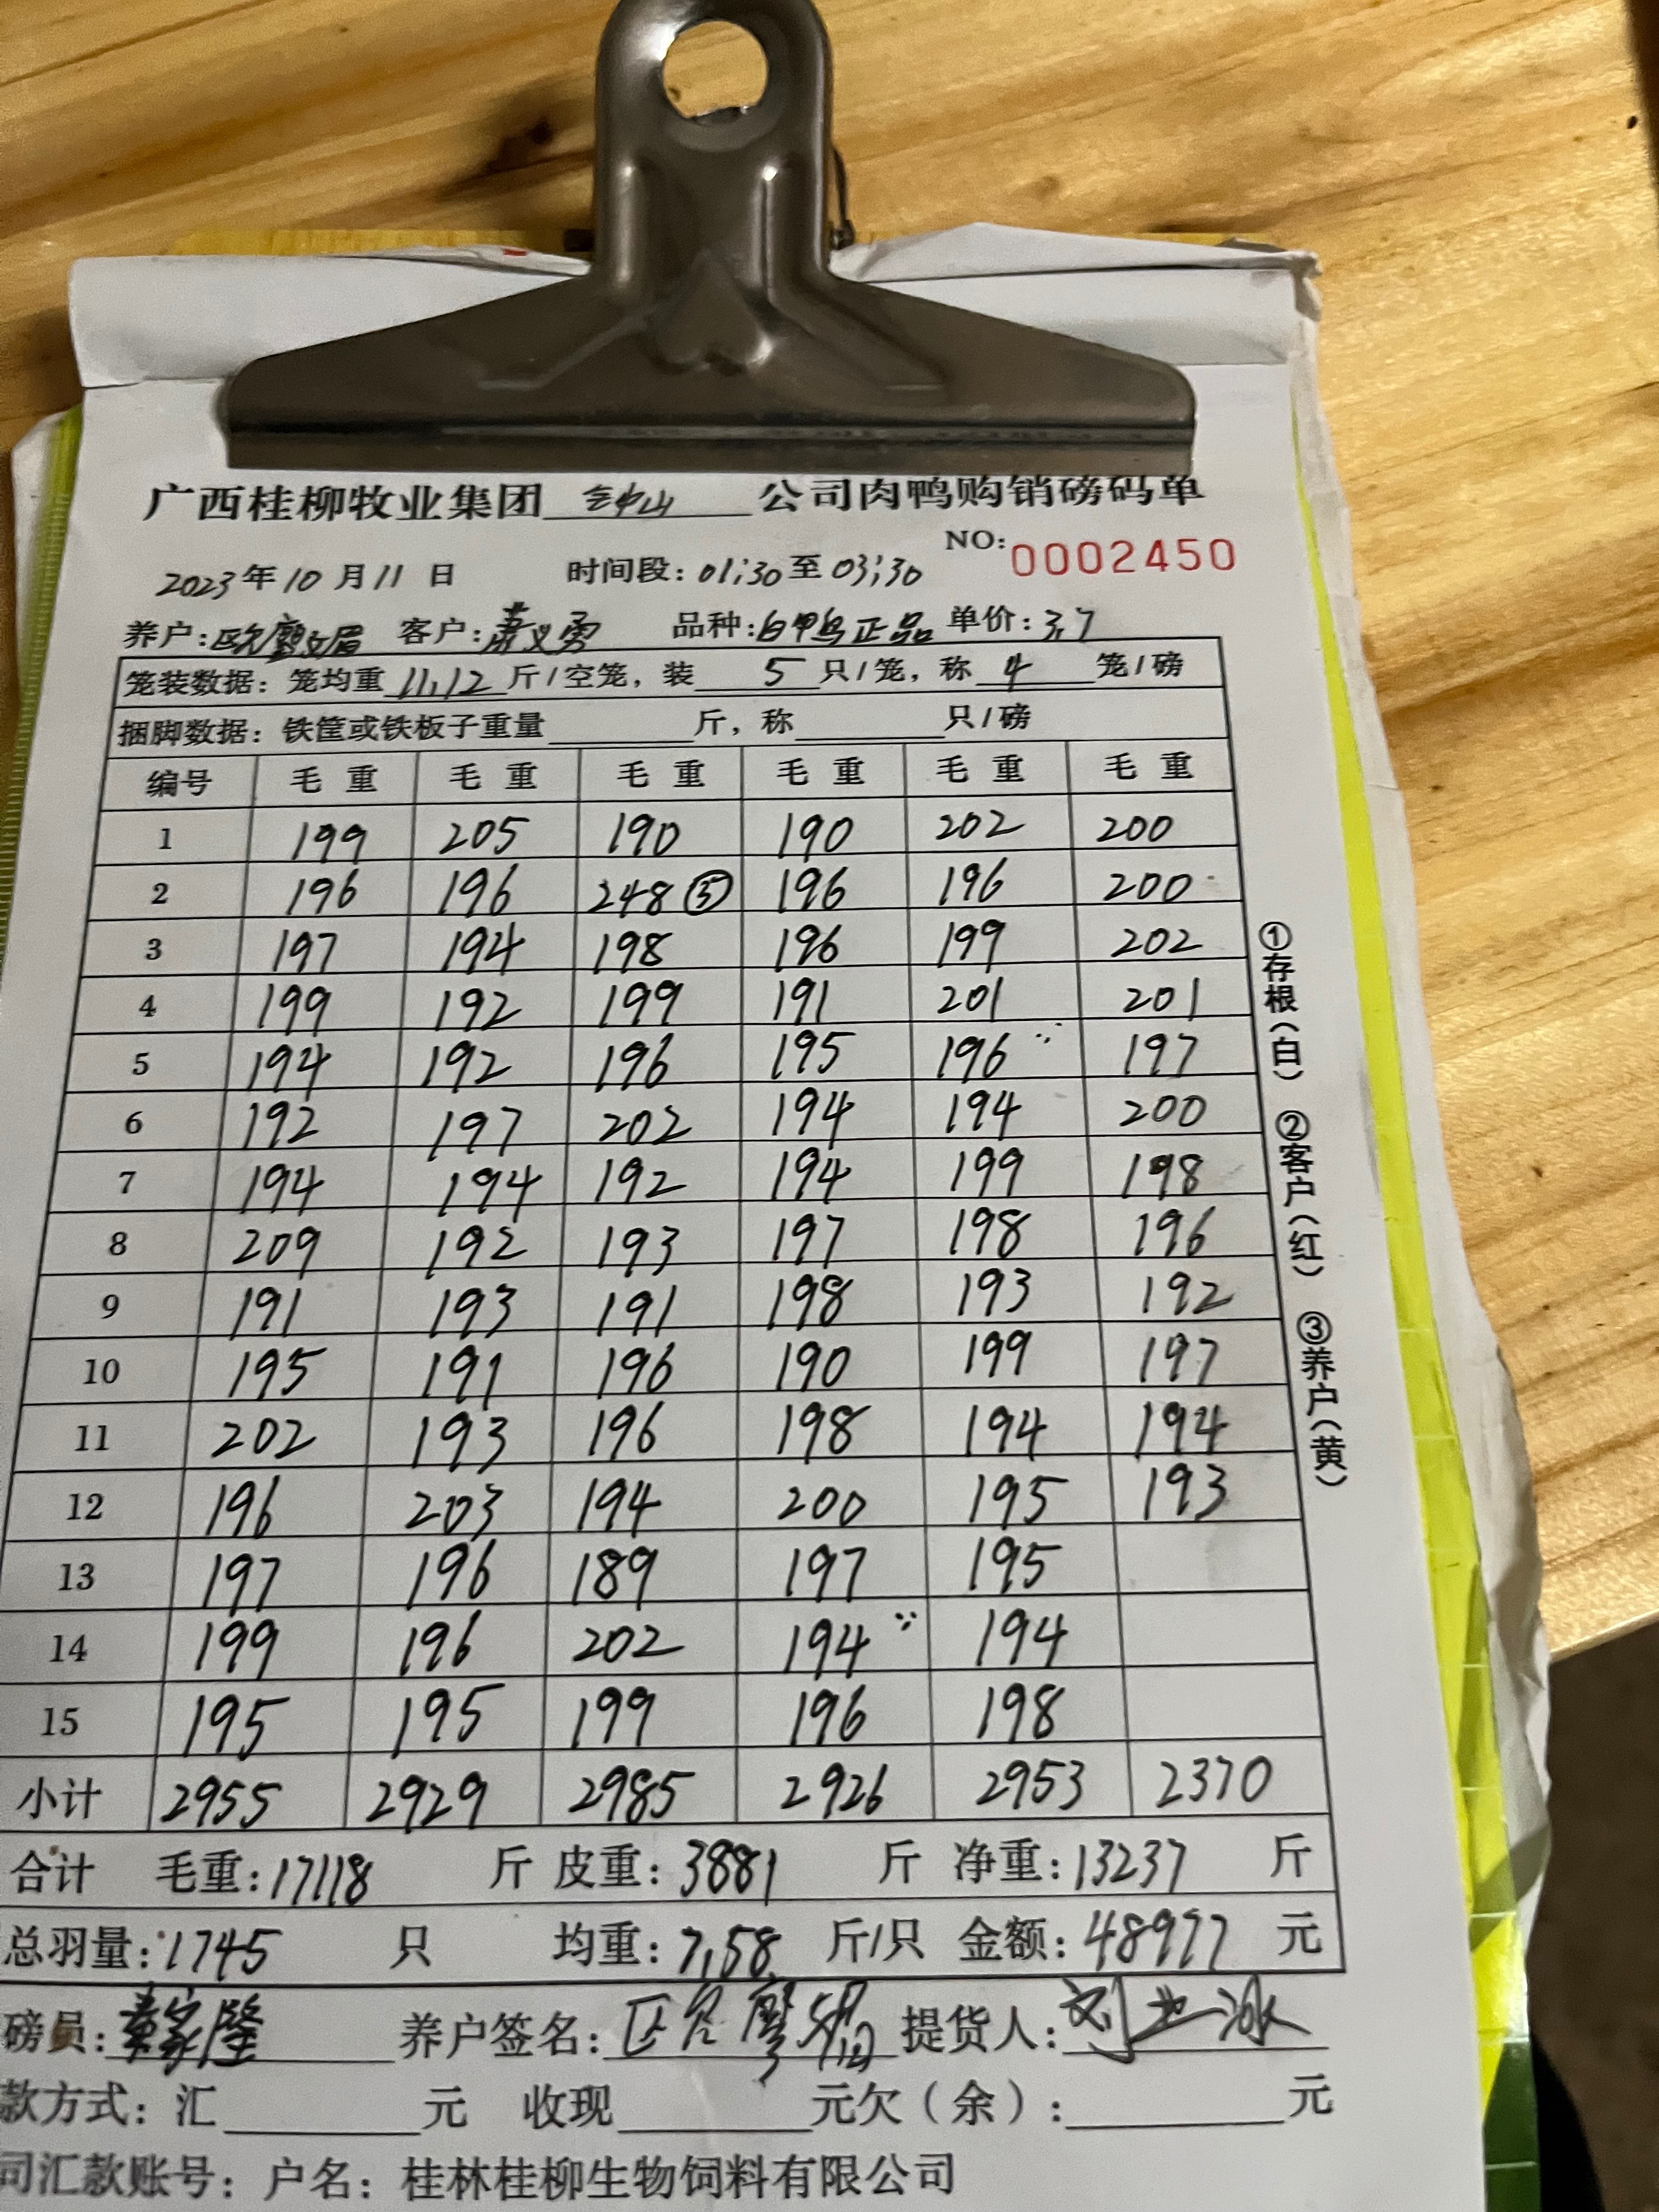 广西桂柳牧业集团 钟山 公司肉鸭购销磅码单
NO: 0002450
2023年10月11日 时间段: 01:30至03:30
养户: 客户:萧义勇 品种:白鸭正品 单价:3.7
笼装数据: 笼均重 11.12 斤/空笼, 装 5 只/笼, 称 4 笼/磅
捆脚数据: 铁筐或铁板子重量 斤, 称 只/磅
编号 毛重 毛重 毛重 毛重 毛重 毛重
1 199 205 190 190 202 200
2 196 196 248⑤ 196 196 200
3 197 194 198 196 199 202
4 199 192 199 191 201 201
5 194 192 196 195 196 197
6 192 197 202 194 194 200
7 194 194 192 194 199 198
8 209 192 193 197 198 196
9 191 193 191 198 193 192
10 195 191 196 190 199 197
11 202 193 196 198 194 194
12 196 203 194 200 195 193
13 197 196 189 197 195
14 199 196 202 194 194
15 195 195 199 196 198
小计 2955 2929 2985 2926 2953 2370
合计 毛重:17118 斤 皮重:3881 斤 净重:13237 斤
总羽量:1745 只 均重:7.58 斤/只 金额:48977 元
磅员: 养户签名: 提货人:
款方式: 汇 元 收现 元欠(余): 元
司汇款账号: 户名: 桂林桂柳生物饲料有限公司
①存根(白) ②客户(红) ③养户(黄)